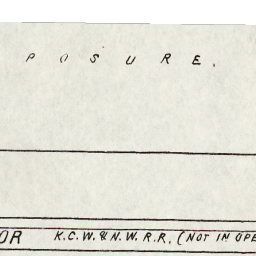 POSURE.
OR K.C.W.&N.W.R.R. (NOT IN OPE